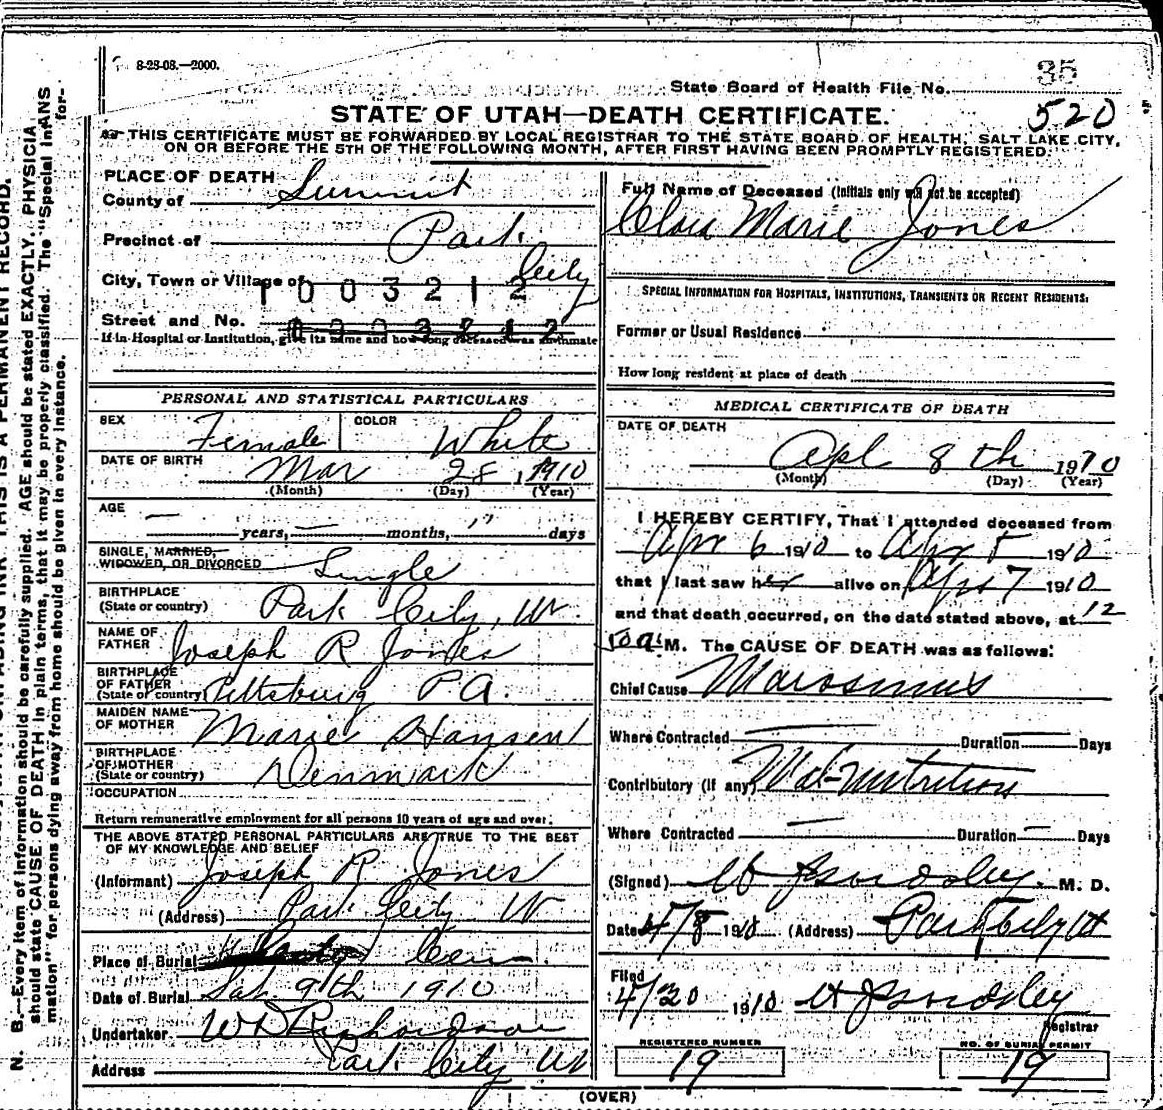 8-28-08.—2000.
35
State Board of Health File No.
520
STATE OF UTAH—DEATH CERTIFICATE.
THIS CERTIFICATE MUST BE FORWARDED BY LOCAL REGISTRAR TO THE STATE BOARD OF HEALTH, SALT LAKE CITY,
ON OR BEFORE THE 5TH OF THE FOLLOWING MONTH, AFTER FIRST HAVING BEEN PROMPTLY REGISTERED.
PLACE OF DEATH
County of Summit
Precinct of Park
City, Town or Village of City
1003212
Street and No. 1003212
If in Hospital or Institution, give its name and how long deceased was an inmate
PERSONAL AND STATISTICAL PARTICULARS
SEX Female COLOR White
DATE OF BIRTH Mar 28, 1910
(Month) (Day) (Year)
AGE — years, — months, 11 days
SINGLE, MARRIED,
WIDOWED, OR DIVORCED Single
BIRTHPLACE
(State or country) Park City, Ut
NAME OF
FATHER Joseph R Jones
BIRTHPLACE
OF FATHER
(State or country) Pittsburg PA.
MAIDEN NAME
OF MOTHER Marie Hansen
BIRTHPLACE
OF MOTHER
(State or country) Denmark
OCCUPATION
Return remunerative employment for all persons 10 years of age and over.
THE ABOVE STATED PERSONAL PARTICULARS ARE TRUE TO THE BEST
OF MY KNOWLEDGE AND BELIEF
(Informant) Joseph R Jones
(Address) Park City Ut
Place of Burial Cem
Date of Burial Sat 9th 1910
Undertaker W Richardson
Address Park City Ut
Full Name of Deceased (Initials only will not be accepted)
Clara Marie Jones
SPECIAL INFORMATION FOR HOSPITALS, INSTITUTIONS, TRANSIENTS OR RECENT RESIDENTS:
Former or Usual Residence
How long resident at place of death
MEDICAL CERTIFICATE OF DEATH
DATE OF DEATH
Apl 8th 1910
(Month) (Day) (Year)
I HEREBY CERTIFY, That I attended deceased from
Apr 6 1910 to Apr 8 1910
that I last saw her alive on Apr 7 1910
and that death occurred, on the date stated above, at 12
a. M. The CAUSE OF DEATH was as follows:
Chief Cause Marasmus
Where Contracted — Duration — Days
Contributory (if any) Mal-nutrition
Where Contracted — Duration — Days
(Signed) M. D.
Date 4/8 1910 (Address) Park City Ut
Filed
4/30 1910
Registrar
REGISTERED NUMBER
19
NO. OF BURIAL PERMIT
19
(OVER)
N. B.—Every item of information should be carefully supplied. AGE should be stated EXACTLY. PHYSICIANS
should state CAUSE OF DEATH in plain terms, that it may be properly classified. The "Special Infor-
mation" for persons dying away from home should be given in every instance.
THIS IS A PERMANENT RECORD.